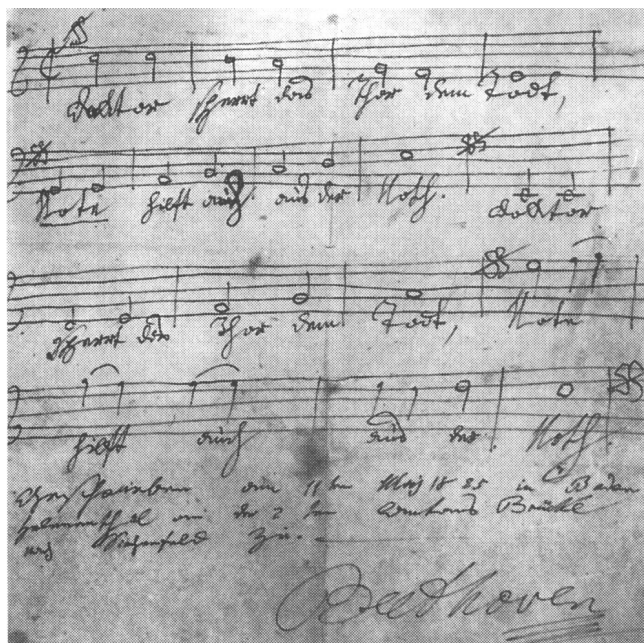 Doktor sperrt das Thor dem Todt,
Note hilft auch aus der Noth. Doktor
Sperrt das Thor dem Todt, Note
hilft auch aus der Noth.
Geschrieben am 11ten May 1825 in Baden
Helenenthal an der 2ten Antons Brücke
nach Siechenfeld zu. –
Beethoven